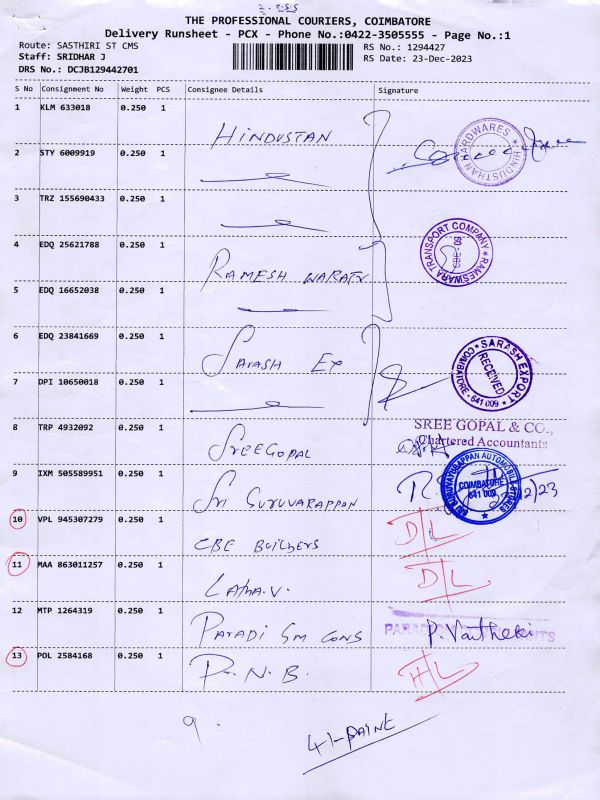 THE PROFESSIONAL COURIERS, COIMBATORE
Delivery Runsheet - PCX - Phone No.:0422-3505555 - Page No.:1
Route: SASTHIRI ST CMS
RS No.: 1294427
Staff: SRIDHAR J
RS Date: 23-Dec-2023
DRS No.: DCJB129442701
S No Consignment No Weight PCS Consignee Details Signature
1 KLM 633018 0.250 1 HINDUSTAN
HINDUSTHAN HARDWARES
2 STY 6009919 0.250 1
3 TRZ 155690433 0.250 1
4 EDQ 25621788 0.250 1 RAMESH WARATN
RAMESWARA TRANSPORT COMPANY CBE-09
5 EDQ 16652038 0.250 1
6 EDQ 23841669 0.250 1 SARASH EX
SARASH EXPORT RECEIVED COIMBATORE - 641 009
7 DPI 10650018 0.250 1
8 TRP 4932092 0.250 1 SREE GOPAL
SREE GOPAL & CO.,
Chartered Accountants
9 IXM 505589951 0.250 1 SRI GURUVARAPPAN
SRI GURUVAYURAPPAN AUTOMOBILE STORES COIMBATORE 641 009
12/23
10 VPL 945307279 0.250 1 CBE BUILDERS D/L
11 MAA 863011257 0.250 1 LATHA.V. D/L
12 MTP 1264319 0.250 1 PARADISM CONS P. Vaitheki
13 POL 2584168 0.250 1 P.N.B. H/L
9.
41-PAINT